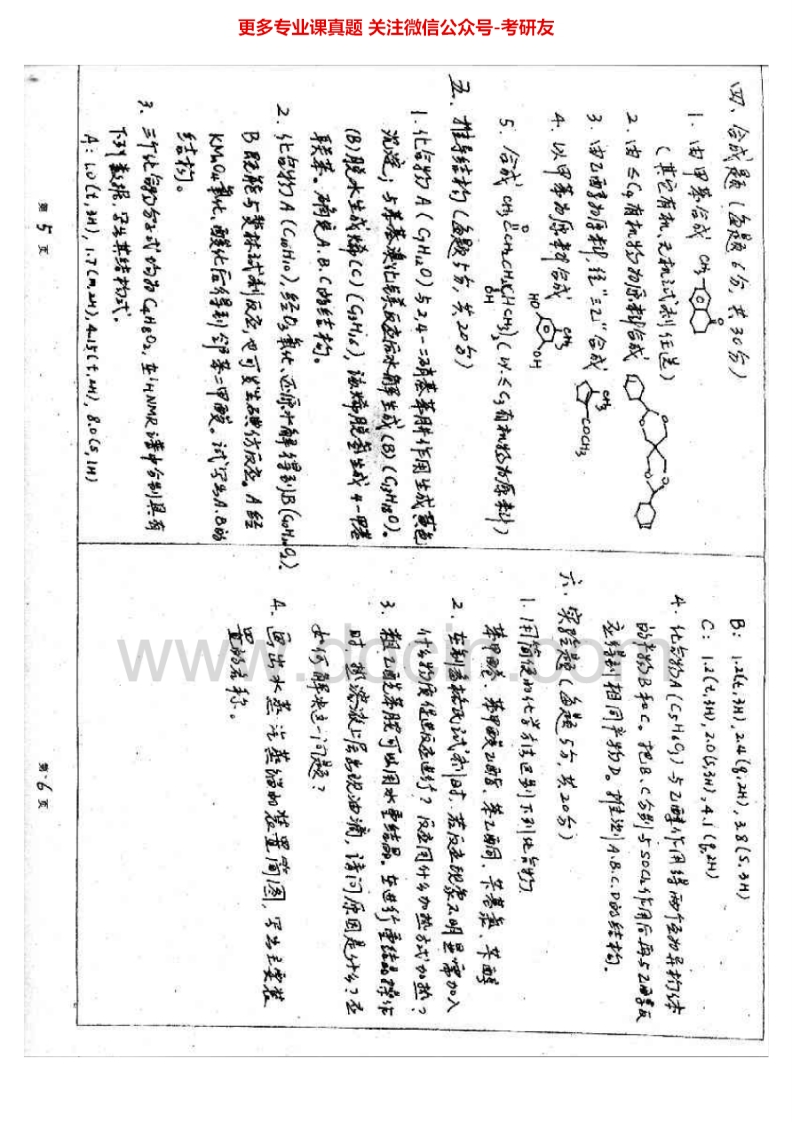 更多专业课真题 关注微信公众号-考研友
四、合成题（每题6分，共30分）
1. 由甲苯合成 CH₃ O
（其它有机、无机试剂任选）
2. 由≤C₄有机物为原料合成
3. 由乙醇为原料经“三乙”合成 CH₃ COCH₃
4. 以甲苯为原料合成 HO CH₃ OH
5. 合成
（以≤C₃有机物为原料）
五、推导结构（每题5分，共20分）
1. 化合物A（C₉H₁₂O）与2,4-二硝基苯肼作用生成黄色
沉淀，与苯基溴化镁反应后水解生成（B）
（B）脱水生成烯（C），该烯脱氢生成4-甲基
联苯。确定A.B.C的结构。
2. 化合物A（C₁₀H₁₀），经O₃氧化、还原水解得到B
B既能与斐林试剂反应，也可发生碘仿反应，A经
KMnO₄氧化、酸化后得到邻苯二甲酸。试写出A.B的
结构。
3. 三个化合物分子式均为C₄H₈O₂，在¹HNMR谱中分别具有
下列数据，写出其结构式。
A：1.0(t,3H), 1.7(m,2H), 4.15(t,2H), 8.0(s,1H)
第 5 页
B：1.2(t,3H), 2.4(q,2H), 3.8(s,3H)
C：1.2(t,3H), 2.0(s,3H), 4.1(q,2H)
4. 化合物A（C₅H₆O₃）与乙醇作用得两个互为异构体
的产物B和C。把B、C分别与SOCl₂作用后再与乙醇反
应得到相同产物D。推测A.B.C.D的结构。
六、实验题（每题5分，共20分）
1. 用简便的化学方法区别下列化合物
苯甲醛、苯甲酸乙酯、苯乙酮、苄基氯、苄醇
2. 在制备格氏试剂时，若反应现象不明显需加入
什么物质促进反应进行？反应用什么加热方式加热？
3. 粗乙酰苯胺可以用水重结晶。在进行重结晶操作
时，热溶液上层出现油滴，请问原因是什么？应
如何解决这一问题？
4. 画出水蒸汽蒸馏的装置简图，写出主要装
置的名称。
第 6 页
www.docin.com